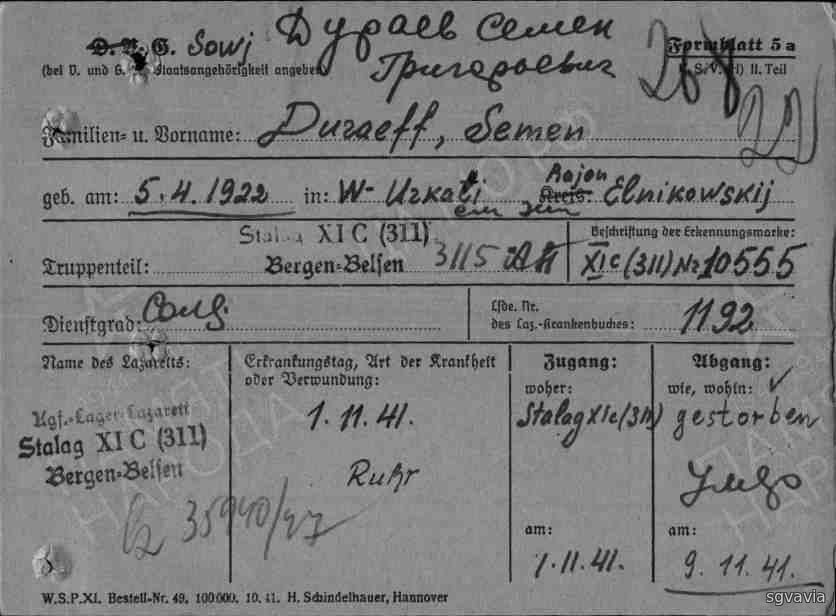 D. R. G. Sowj Дураев Семен Formblatt 5a
(bei V. und G. Staatsangehörigkeit angeben) Григорьевич II. Teil
Familien- u. Vorname: Duraeff, Semen
geb. am: 5.4.1922 in: W- Urkati Rajon Kreis: Elnikowskij
Stalag XI C (311) Beschriftung der Erkennungsmarke:
Truppenteil: Bergen-Belsen 3115 XIc (311) Nr 10555
Dienstgrad: Солд. Lfde. Nr.
des Laz.-Krankenbuches: 1192
Name des Lazaretts: Erkrankungstag, Art der Krankheit Zugang: Abgang:
oder Verwundung: woher: wie, wohin:
Kgf.-Lager-Lazarett 1.11.41. Stalag XIc (311) gestorben
Stalag XI C (311)
Bergen-Belsen Ruhr умер
35940/47
am: am:
1.11.41. 9.11.41.
W.S.P.XI. Bestell-Nr. 49. 100000. 10.41. H. Schindelhauer, Hannover
sgvavia